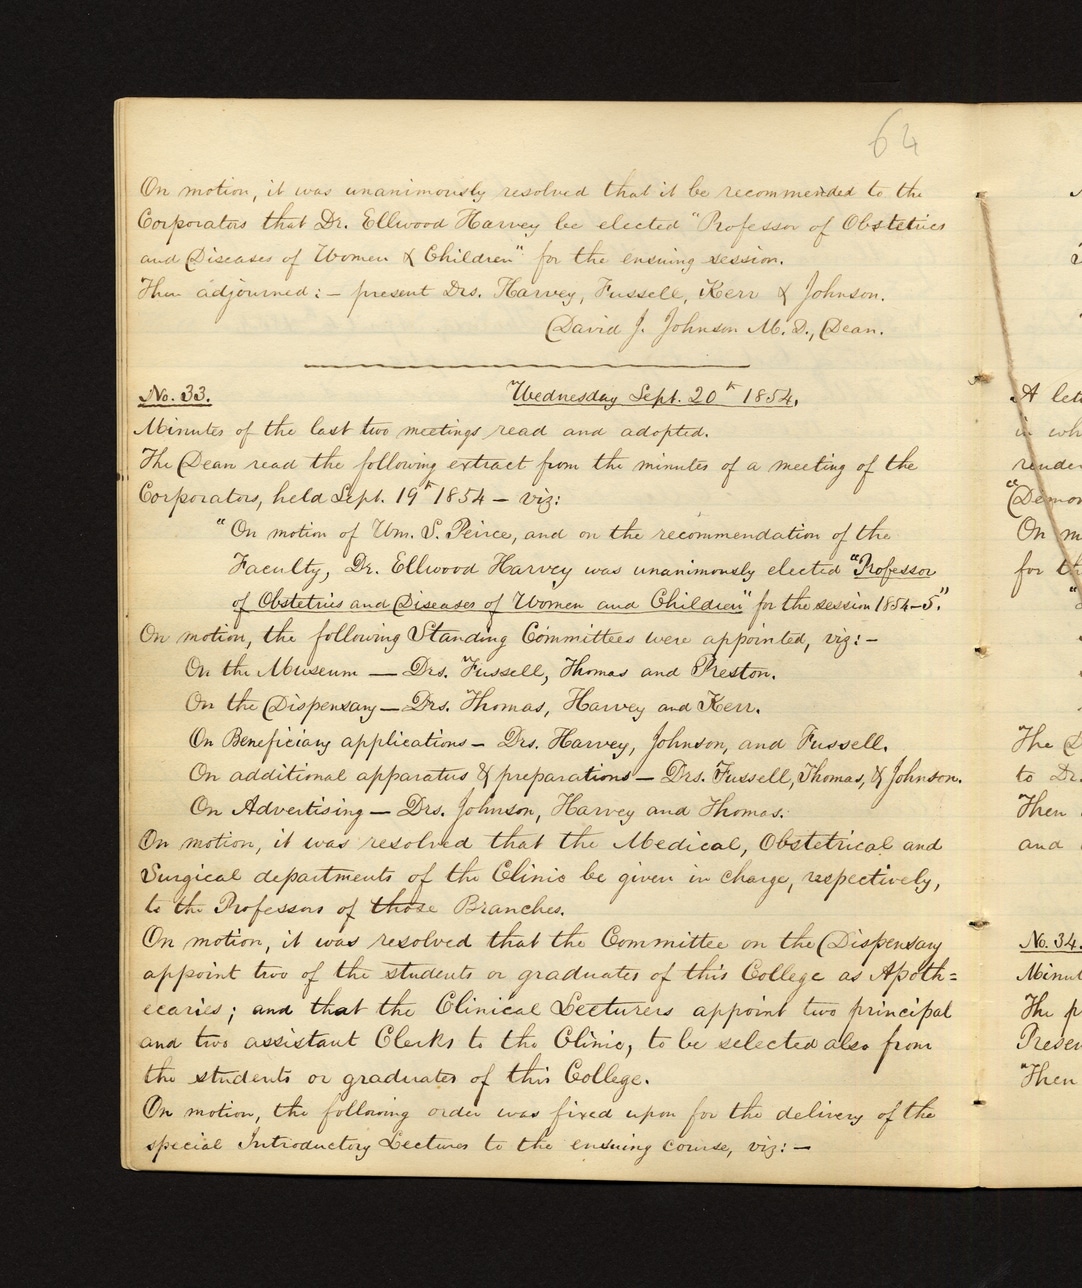 64
On motion, it was unanimously resolved that it be recommended to the
Corporators that Dr. Ellwood Harvey be elected "Professor of Obstetrics
and Diseases of Women & Children" for the ensuing session.
Then adjourned:— present Drs. Harvey, Fussell, Kerr & Johnson.
David J. Johnson M.D., Dean.
No. 33. Wednesday Sept. 20th 1854.
Minutes of the last two meetings read and adopted.
The Dean read the following extract from the minutes of a meeting of the
Corporators, held Sept. 19th 1854 — viz:
"On motion of Wm. S. Peirce, and on the recommendation of the
Faculty, Dr. Ellwood Harvey was unanimously elected "Professor
of Obstetrics and Diseases of Women and Children" for the session 1854–5."
On motion, the following Standing Committees were appointed, viz:—
On the Museum — Drs. Fussell, Thomas and Preston.
On the Dispensary — Drs. Thomas, Harvey and Kerr.
On Beneficiary applications — Drs. Harvey, Johnson, and Fussell.
On additional apparatus & preparations — Drs. Fussell, Thomas, & Johnson.
On Advertising — Drs. Johnson, Harvey and Thomas.
On motion, it was resolved that the Medical, Obstetrical and
Surgical departments of the Clinic be given in charge, respectively,
to the Professors of those Branches.
On motion, it was resolved that the Committee on the Dispensary
appoint two of the students or graduates of this College as Apoth=
ecaries; and that the Clinical Lecturers appoint two principal
and two assistant Clerks to the Clinic, to be selected also from
the students or graduates of this College.
On motion, the following order was fixed upon for the delivery of the
special Introductory Lectures to the ensuing course, viz:—
A
in
"
On
for
The
to Dr.
Then
and
No. 34.
The
"Then